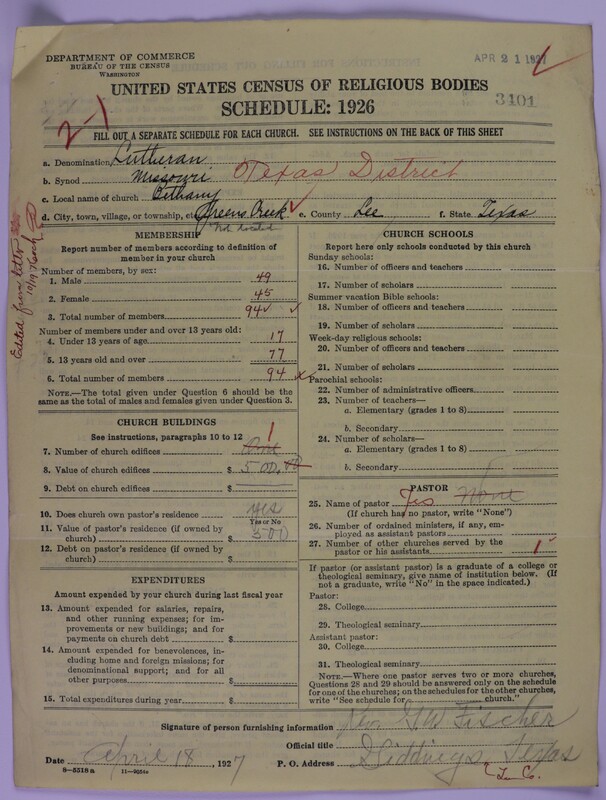 DEPARTMENT OF COMMERCE
BUREAU OF THE CENSUS
WASHINGTON
APR 21 1927
UNITED STATES CENSUS OF RELIGIOUS BODIES
SCHEDULE: 1926
3401
2-1
FILL OUT A SEPARATE SCHEDULE FOR EACH CHURCH. SEE INSTRUCTIONS ON THE BACK OF THIS SHEET
a. Denomination Lutheran
b. Synod Missouri Texas District
c. Local name of church Bethany
d. City, town, village, or township, etc. Greens Creek e. County Lee f. State Texas
Not located
Edited from letter
MEMBERSHIP
Report number of members according to definition of
member in your church
Number of members, by sex:
1. Male 49
2. Female 45
3. Total number of members 94
Number of members under and over 13 years old:
4. Under 13 years of age 17
5. 13 years old and over 77
6. Total number of members 94
NOTE.—The total given under Question 6 should be the
same as the total of males and females given under Question 3.
CHURCH BUILDINGS
See instructions, paragraphs 10 to 12
7. Number of church edifices One 1
8. Value of church edifices $ 500.00
9. Debt on church edifices $
10. Does church own pastor's residence yes
Yes or No
11. Value of pastor's residence (if owned by
church) $ 500
12. Debt on pastor's residence (if owned by
church) $
EXPENDITURES
Amount expended by your church during last fiscal year
13. Amount expended for salaries, repairs,
and other running expenses; for im-
provements or new buildings; and for
payments on church debt $
14. Amount expended for benevolences, in-
cluding home and foreign missions; for
denominational support; and for all
other purposes $
15. Total expenditures during year $
CHURCH SCHOOLS
Report here only schools conducted by this church
Sunday schools:
16. Number of officers and teachers
17. Number of scholars
Summer vacation Bible schools:
18. Number of officers and teachers
19. Number of scholars
Week-day religious schools:
20. Number of officers and teachers
21. Number of scholars
Parochial schools:
22. Number of administrative officers
23. Number of teachers—
a. Elementary (grades 1 to 8)
b. Secondary
24. Number of scholars—
a. Elementary (grades 1 to 8)
b. Secondary
PASTOR
25. Name of pastor Yes None
(If church has no pastor, write "None")
26. Number of ordained ministers, if any, em-
ployed as assistant pastors
27. Number of other churches served by the
pastor or his assistants 1
If pastor (or assistant pastor) is a graduate of a college or
theological seminary, give name of institution below. (If
not a graduate, write "No" in the space indicated.)
Pastor:
28. College
29. Theological seminary
Assistant pastor:
30. College
31. Theological seminary
NOTE.—Where one pastor serves two or more churches,
Questions 28 and 29 should be answered only on the schedule
for one of the churches; on the schedules for the other churches,
write "See schedule for church."
Signature of person furnishing information Rev. G W Fischer
Official title
Date April 18, 1927 P. O. Address Giddings, Texas
8-5518a 11-9084a